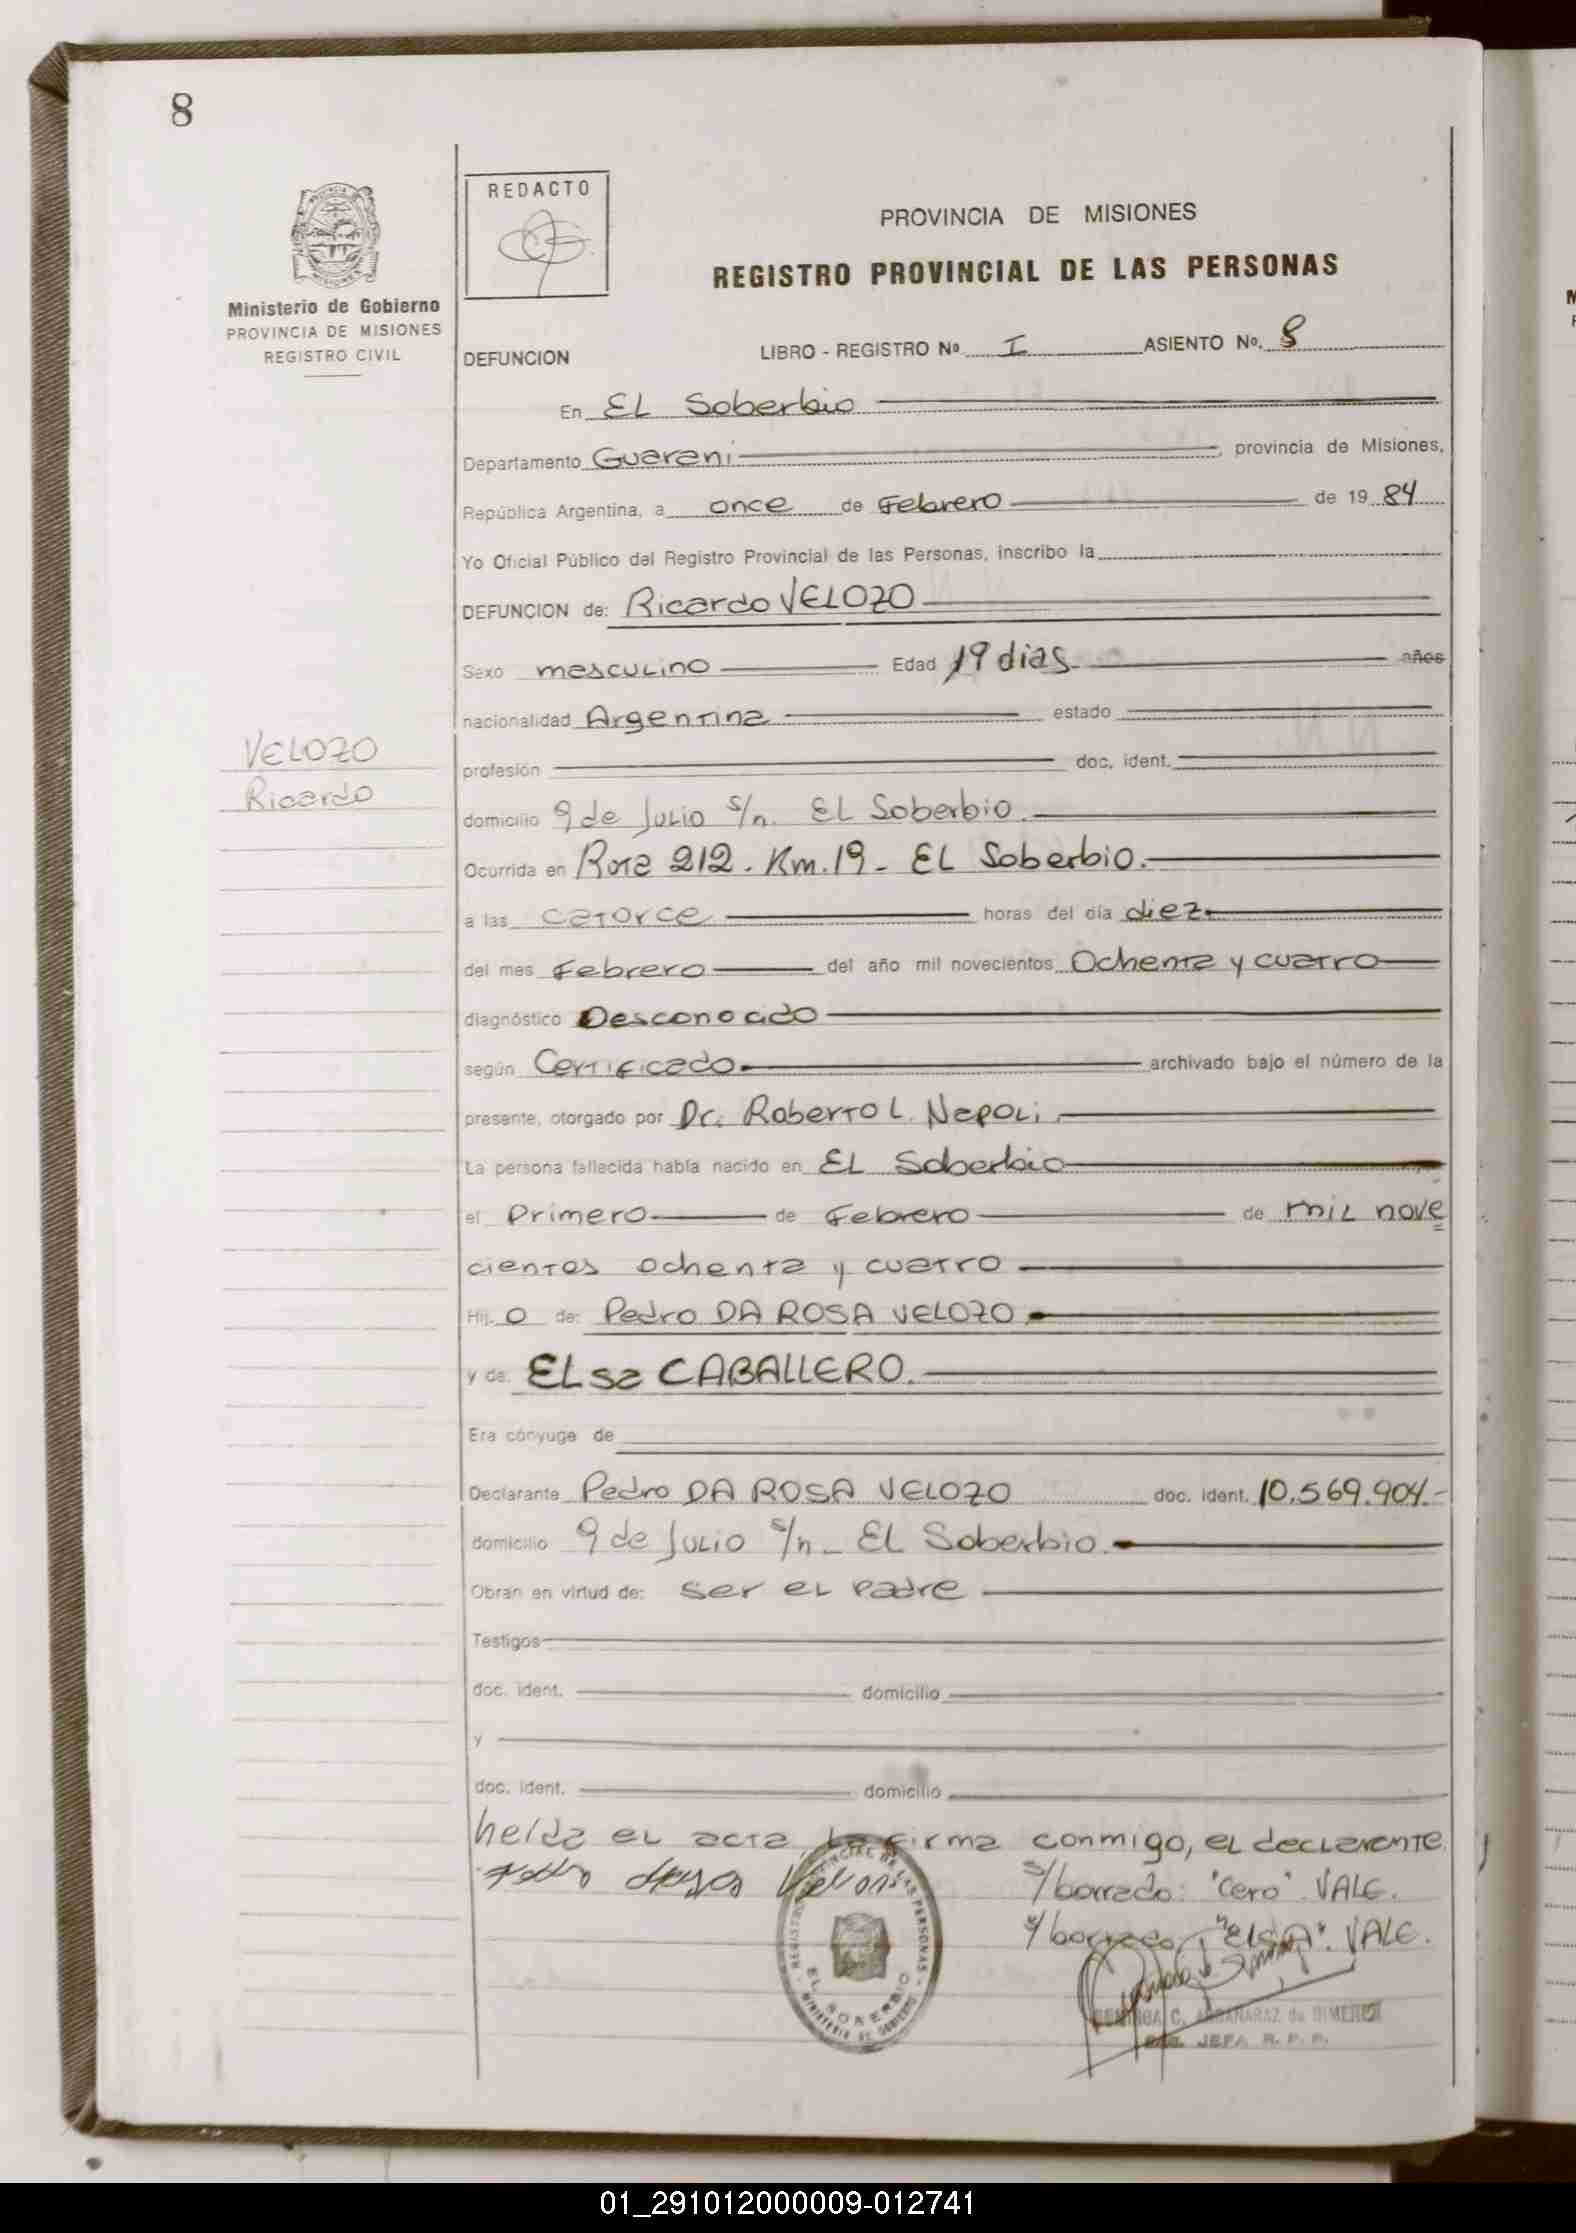 8
REDACTO
PROVINCIA DE MISIONES
REGISTRO PROVINCIAL DE LAS PERSONAS
Ministerio de Gobierno
PROVINCIA DE MISIONES
REGISTRO CIVIL
DEFUNCION LIBRO - REGISTRO Nº I ASIENTO Nº. 8
En EL Soberbio
Departamento Guarani, provincia de Misiones,
República Argentina, a once de Febrero de 19 84
Yo Oficial Público del Registro Provincial de las Personas, inscribo la
DEFUNCION de: Ricardo VELOZO
Sexo masculino Edad 19 dias años
nacionalidad Argentina estado
VELOZO
Ricardo
profesión doc. ident.
domicilio 9 de Julio s/n. EL Soberbio
Ocurrida en Ruta 212. Km. 19 - EL Soberbio.
a las catorce horas del día diez
del mes Febrero del año mil novecientos Ochenta y cuatro
diagnóstico Desconocido
según Certificado archivado bajo el número de la
presente, otorgado por Dr. Roberto L. Napoli
La persona fallecida había nacido en EL Soberbio
el Primero de Febrero de mil nove
cientos ochenta y cuatro
Hij o de: Pedro DA ROSA VELOZO
y de: ELsa CABALLERO.
Era cónyuge de
Declarante Pedro DA ROSA VELOZO doc. ident. 10.569.904.-
domicilio 9 de Julio s/n - EL Soberbio.
Obran en virtud de: ser el padre
Testigos
doc. ident. domicilio
y
doc. ident. domicilio
heída el acta la firma conmigo, el declarante
s/borrado: "cero" VALE.
s/borrado "ELSA". VALE.
REGISTRO PROVINCIAL DE LAS PERSONAS
EL SOBERBIO
MINISTERIO DE GOBIERNO
JEFA R. P. P.
01_291012000009-012741